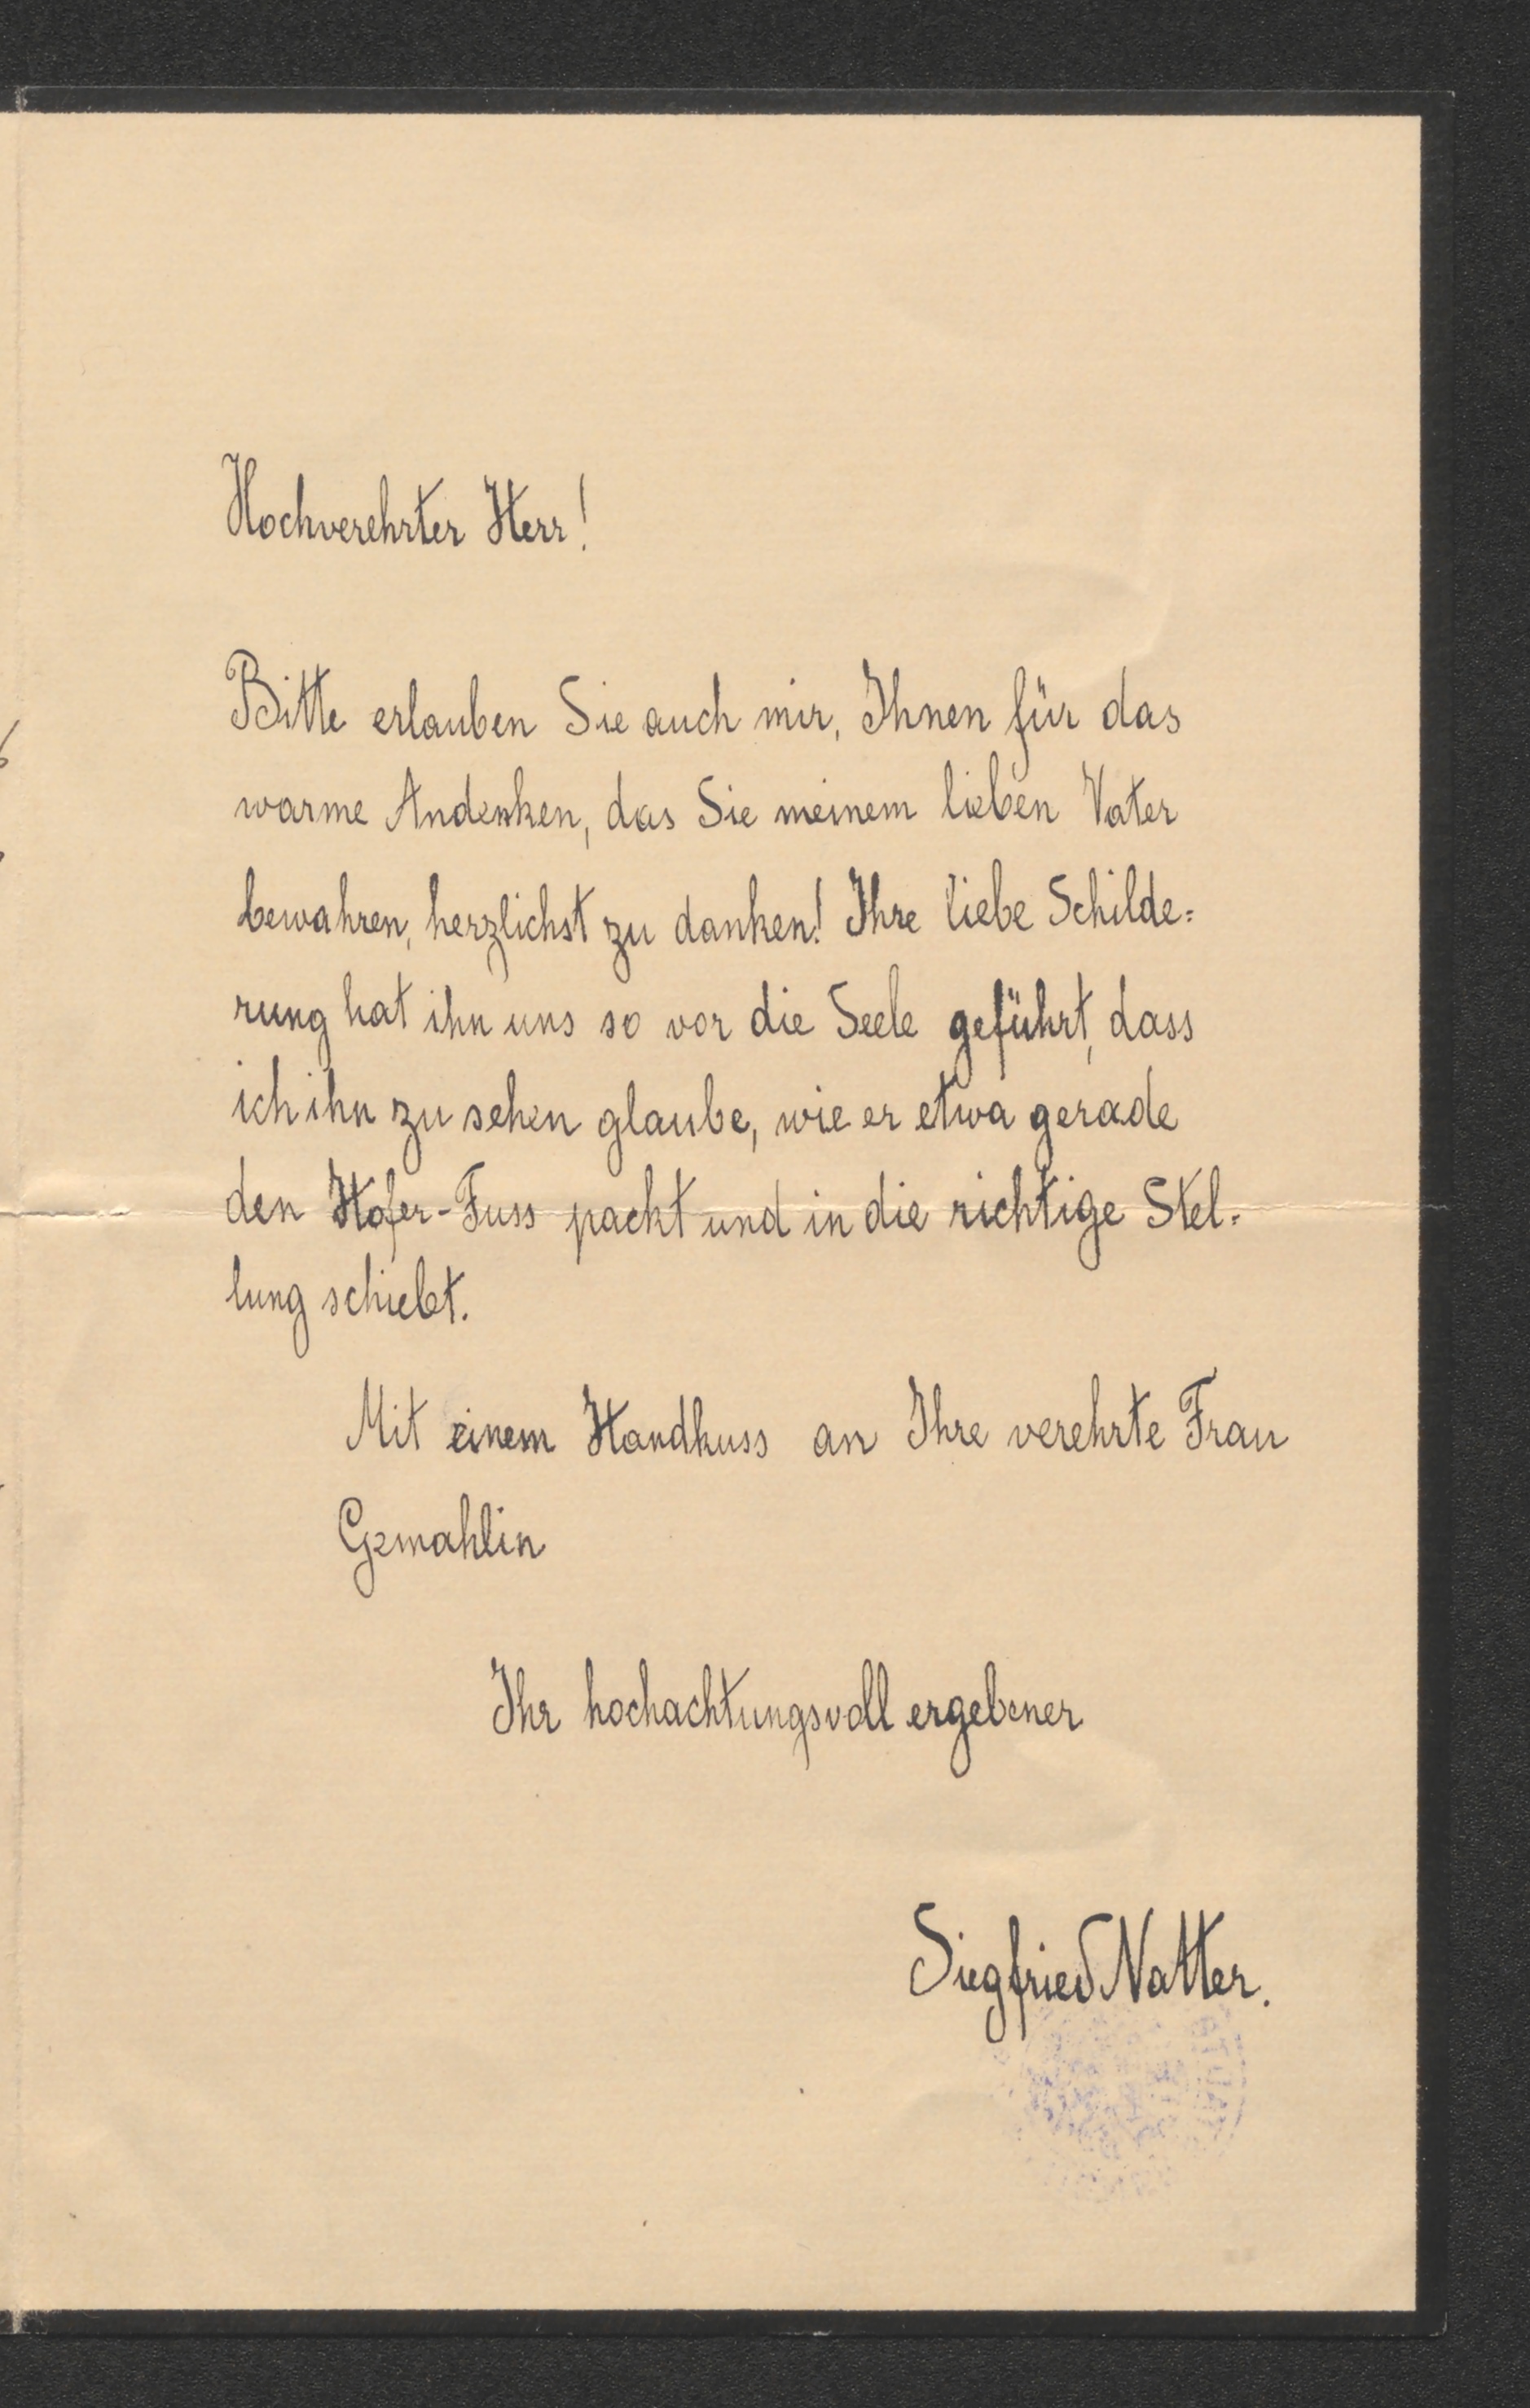 Hochverehrter Herr!
Bitte erlauben Sie auch mir, Ihnen für das
warme Andenken, das Sie meinem lieben Vater
bewahren, herzlichst zu danken! Ihre liebe Schilde=
rung hat ihn uns so vor die Seele geführt, dass
ich ihn zu sehen glaube, wie er etwa gerade
den Hofer-Fuss packt und in die richtige Stel=
lung schiebt.
Mit einem Handkuss an Ihre verehrte Frau
Gemahlin
Ihr hochachtungsvoll ergebener
Siegfried Natter.